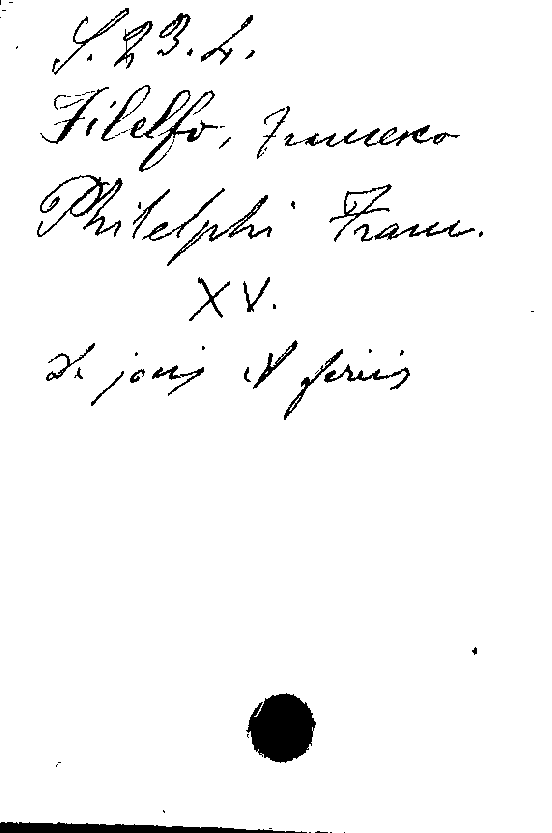 S. 23. L.
Filelfo, Francesco
Philelphi Franc.
XV.
De jocis et seriis